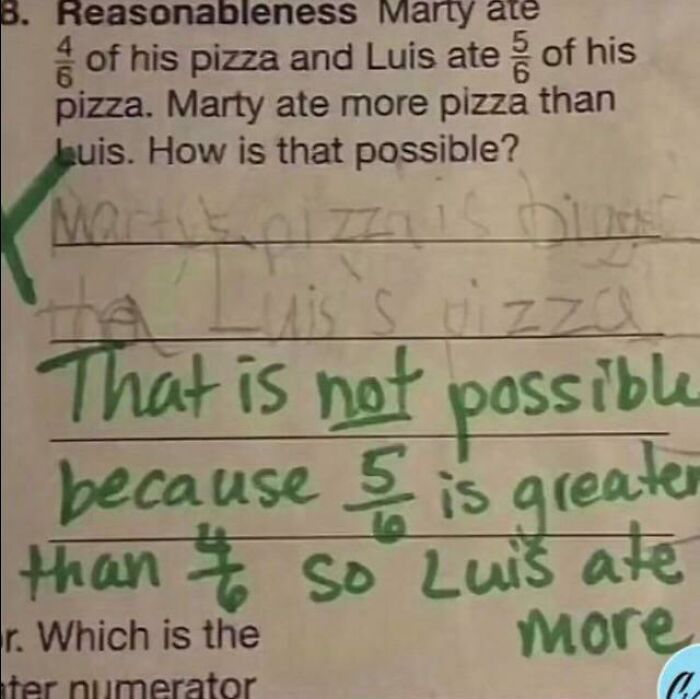 8. Reasonableness Marty ate
4/6 of his pizza and Luis ate 5/6 of his
pizza. Marty ate more pizza than
Luis. How is that possible?
Marty's pizza is bigger
tha Luis's pizza
That is not possible
because 5/6 is greater
than 4/6 so Luis ate
more
r. Which is the
ter numerator